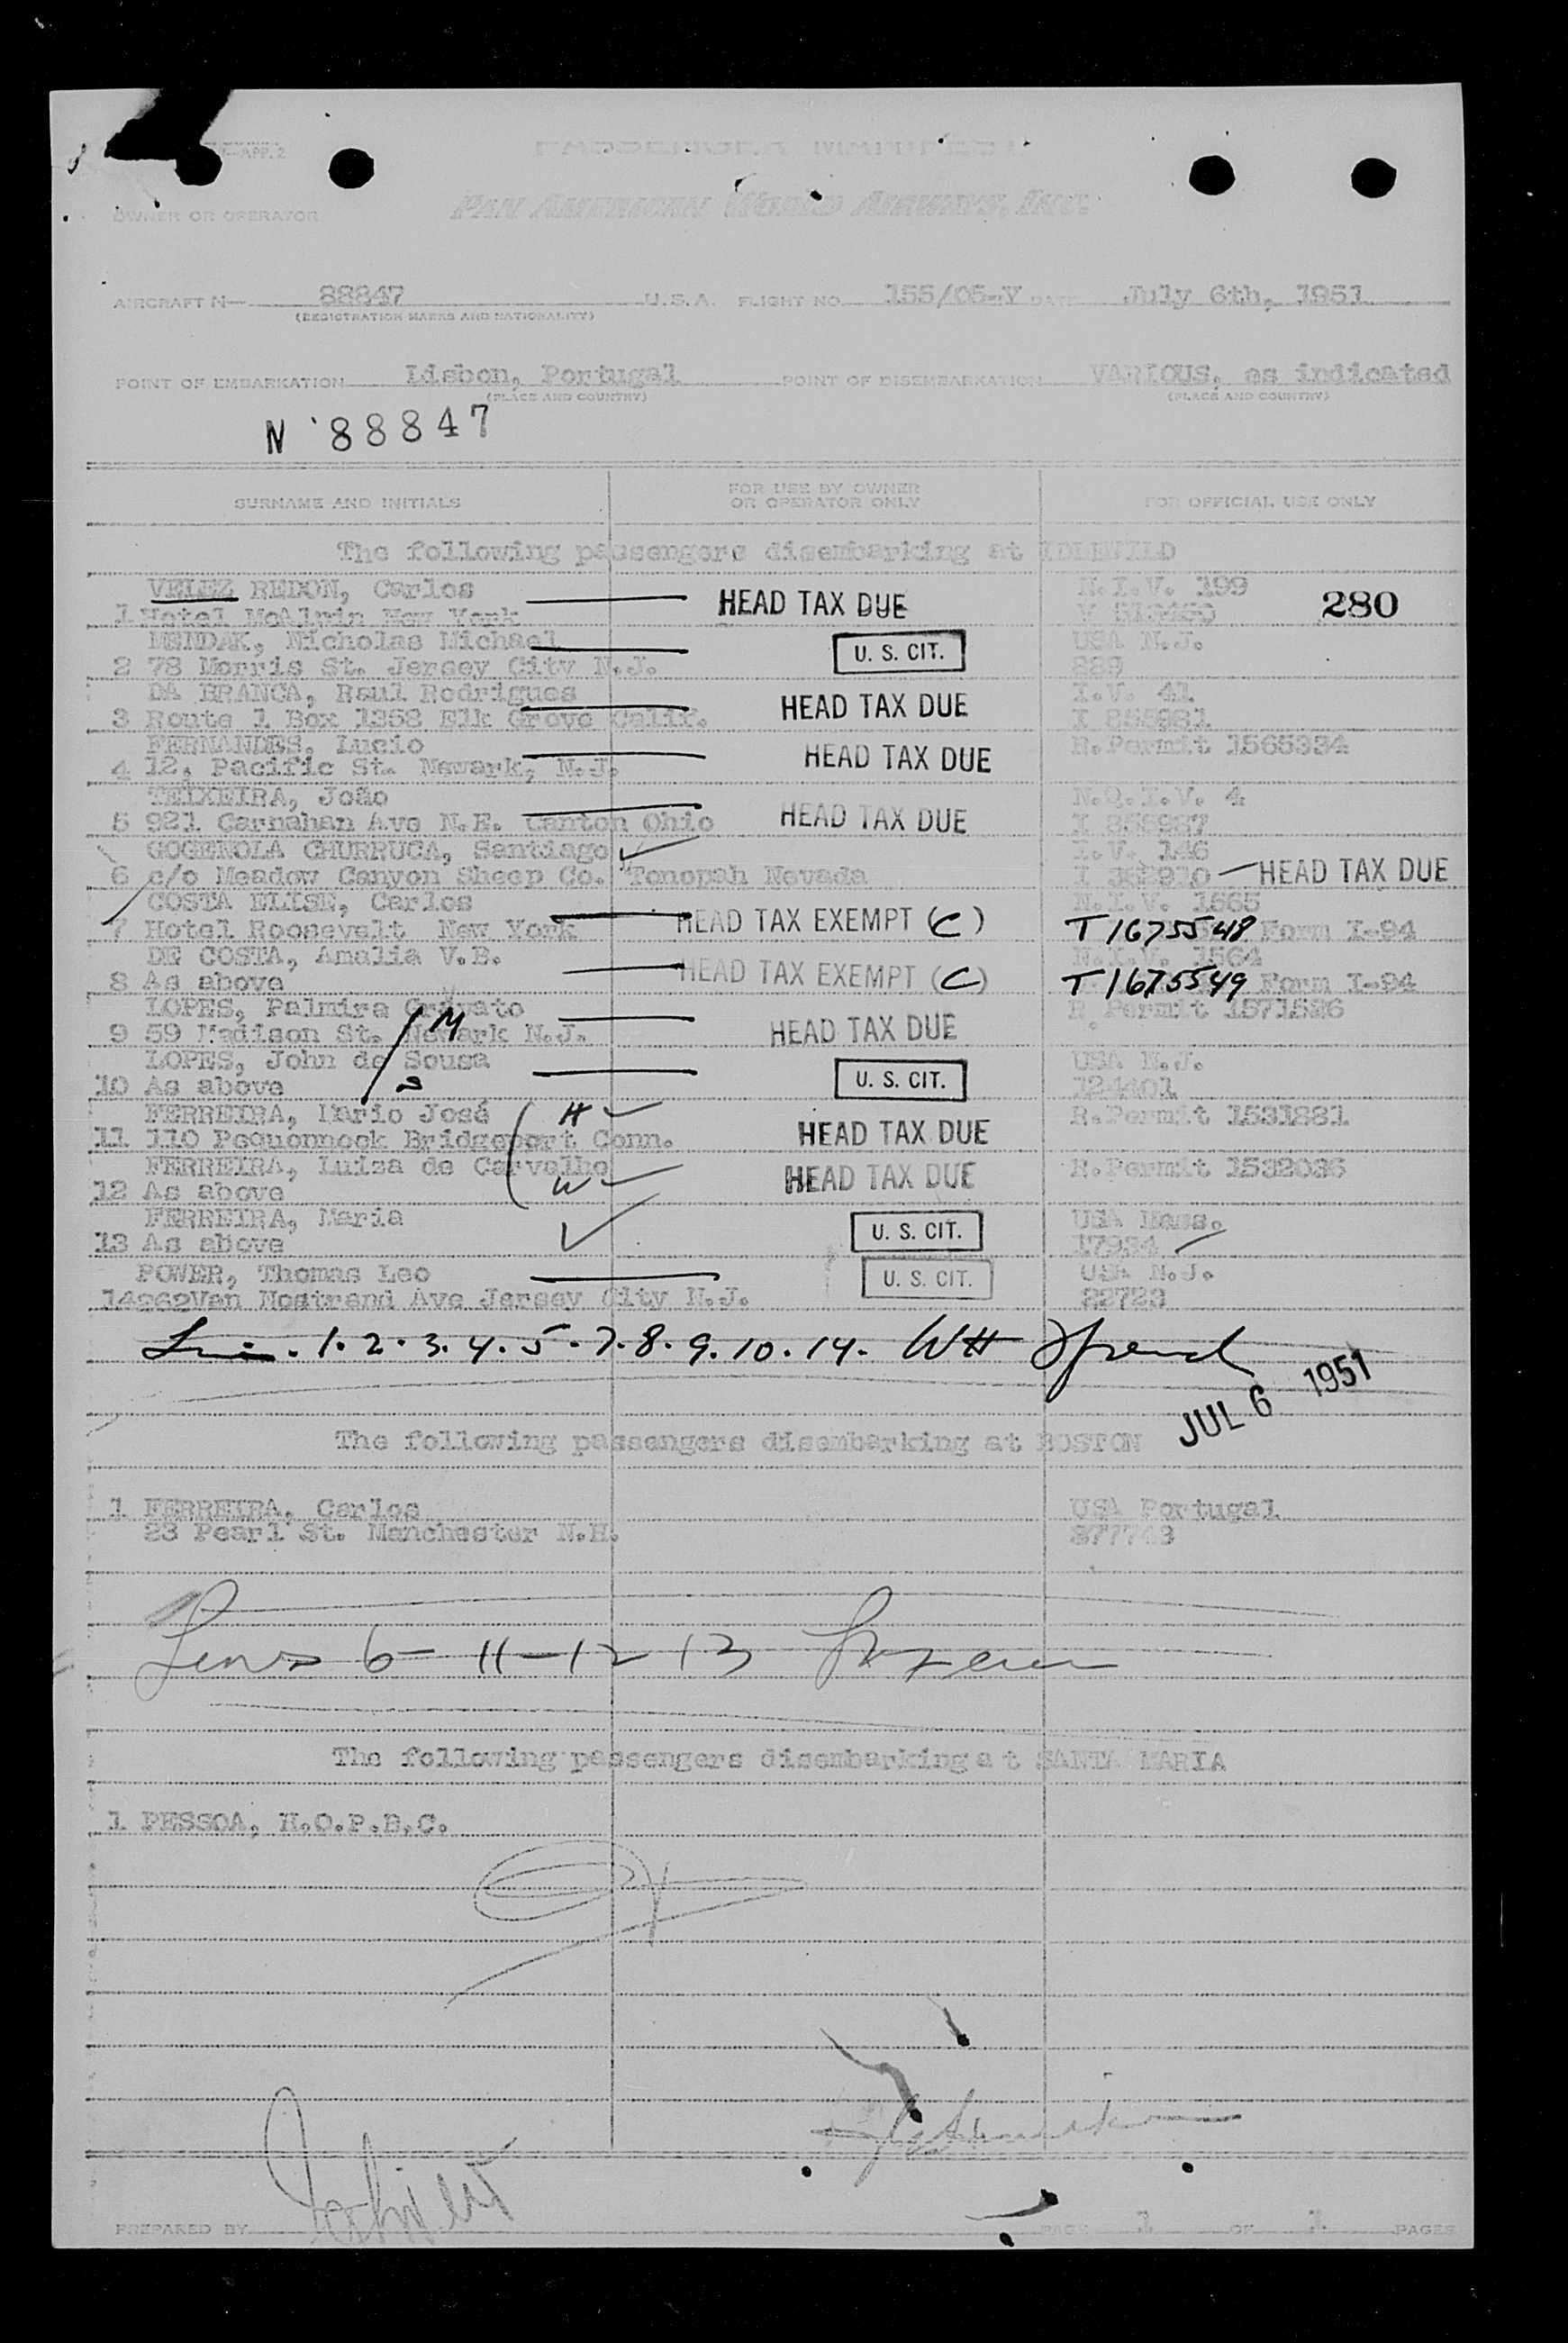 APP. 2
PASSENGER MANIFEST
OWNER OR OPERATOR
PAN AMERICAN WORLD AIRWAYS, INC.
AIRCRAFT N— 88847 U.S.A. FLIGHT NO. 155/05-Y DATE July 6th, 1951
(REGISTRATION MARKS AND NATIONALITY)
POINT OF EMBARKATION Lisbon, Portugal POINT OF DISEMBARKATION VARIOUS, as indicated
(PLACE AND COUNTRY) (PLACE AND COUNTRY)
N 88847
SURNAME AND INITIALS FOR USE BY OWNER OR OPERATOR ONLY FOR OFFICIAL USE ONLY
The following passengers disembarking at IDLEWILD
VELEZ REDON, Carlos HEAD TAX DUE N.I.V. 199
1 Hotel McAlpin New York V 280
MENDAK, Nicholas Michael U. S. CIT. USA N.J.
2 78 Morris St. Jersey City N.J. 889
DA BRANCA, Raul Rodrigues HEAD TAX DUE I.V. 41
3 Route 1 Box 1358 Elk Grove Calif. I 855981
FERNANDES, Lucio HEAD TAX DUE R.Permit 1565334
4 12, Pacific St. Newark, N.J.
TEIXEIRA, João HEAD TAX DUE N.Q.I.V. 4
5 921 Carnahan Ave N.E. Canton Ohio I
GOGENOLA CHURRUCA, Santiago I.V. 146
6 c/o Meadow Canyon Sheep Co. Tonopah Nevada I HEAD TAX DUE
COSTA ELISE, Carlos HEAD TAX EXEMPT (C) N.I.V. 1565
7 Hotel Roosevelt New York T1675548 Form I-94
DE COSTA, Amalia V.B. HEAD TAX EXEMPT (C) N.I.V. 1564
8 As above T1675549 Form I-94
LOPES, Palmira Gravato HEAD TAX DUE R Permit 1571526
9 59 Madison St. Newark N.J. M
LOPES, John de Sousa U. S. CIT. USA N.J.
10 As above S 124401
FERREIRA, Mario José H HEAD TAX DUE R.Permit 1531881
11 110 Pequonnock Bridgeport Conn.
FERREIRA, Luiza de Carvalho HEAD TAX DUE R.Permit 1532036
12 As above W
FERREIRA, Maria U. S. CIT. USA Mass.
13 As above 17934
POWER, Thomas Leo U. S. CIT. USA N.J.
14 262 Van Nostrand Ave Jersey City N.J. 22723
1. 2. 3. 4. 5. 7. 8. 9. 10. 14. WH
JUL 6 1951
The following passengers disembarking at BOSTON
1 FERREIRA, Carlos USA Portugal
23 Pearl St. Manchester N.H.
Lines 6 - 11 - 12 13
The following passengers disembarking at SANTA MARIA
1 PESSOA, H.O.P.B.C.
PREPARED BY PAGE 1 OF 1 PAGES